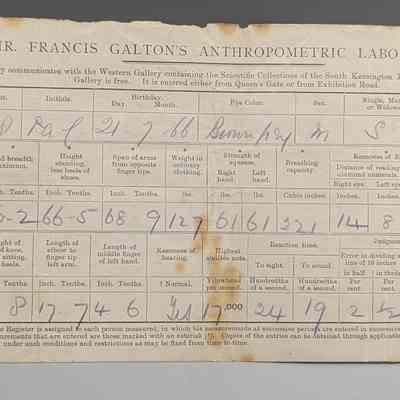 R. FRANCIS GALTON'S ANTHROPOMETRIC LABO
y communicates with the Western Gallery containing the Scientific Collections of the South Kensington
Gallery is free. It is entered either from Queen's Gate or from Exhibition Road.
Initials. Birthday. Eye Color. Sex. Single, Mar
Day. Month. or Widowe
21 7 66 Brown grey M S
d breadth Height Span of arms Weight in Strength of Breathing
maximum. standing, from opposite ordinary squeeze. capacity. Distance of reading
less heels of finger tips. clothing. Right Left diamond numerals.
shoes. hand. hand. Right eye. Left eye
Tenths. Inch. Tenths. Inch. Tenths. lbs. lbs. lbs. Cubic inches. Inches.
2 66-5 68 9 127 61 61 221 14 8
Length of Length of Keenness of Highest Reaction time. Judgme
elbow to middle finger hearing. audible note. Error in dividing a
finger tip of left hand. To sight. To sound. line of 10 inches
left arm. in half in thirds
Tenths Inch. Tenths. Inch. Tenths. ? Normal. Vibrations per second. Hundredths of a second. Hundredths of a second. Per cent. Per cent.
8 17.7 4 6 Yes 17,000 24 19 2 ½
e Register is assigned to each person measured, in which his measurements at successive periods are entered in successive
urements that are entered are those marked with an asterisk (*). Copies of the entries can be obtained through application
under such conditions and restrictions as may be fixed from time to time.